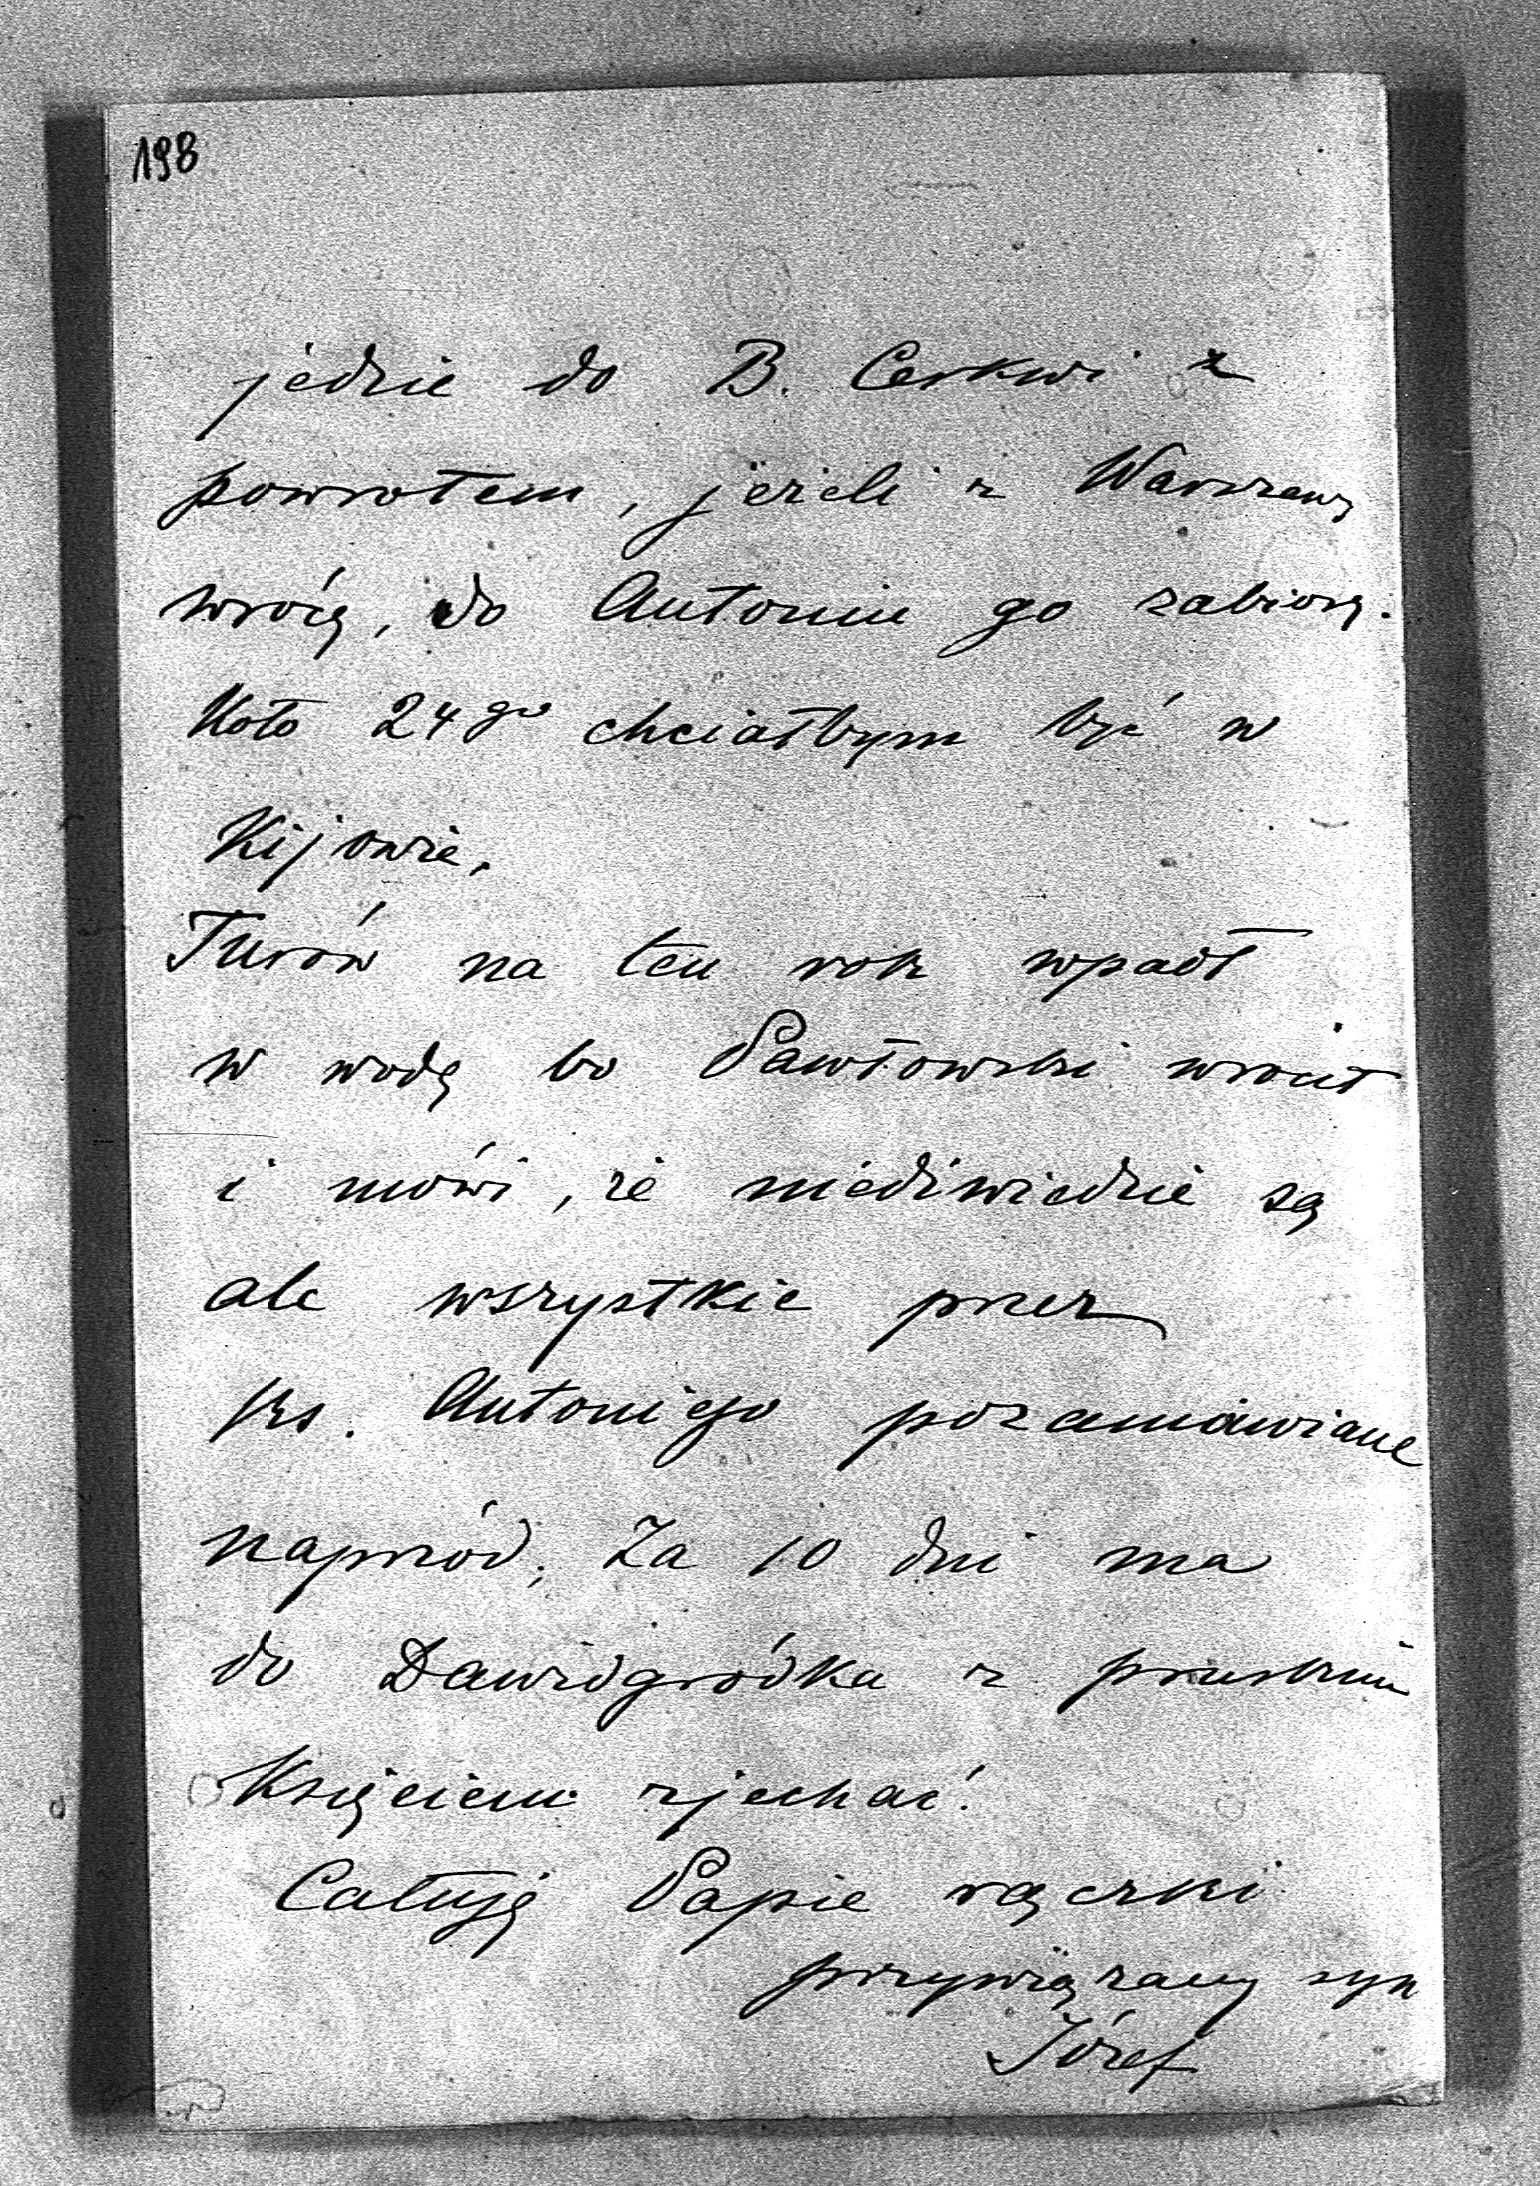 198
jedzie do B. Cerkwi z
powrotem, jeżeli z Warszawy
wrócę, do Antonin go zabiorę.
Koło 24go chciałbym być w
Kijowie.
Turów na ten rok wpadł
w wodę bo Pawłowski wrócił
i mówi, że niedźwiedzie są
ale wszystkie przez
ks. Antoniego pozamawiane
naprzód. Za 10 dni ma
do Dawidgródka z pruskim
Księciem zjechać.
Całuję Papie rączki
przywiązany syn
Józef